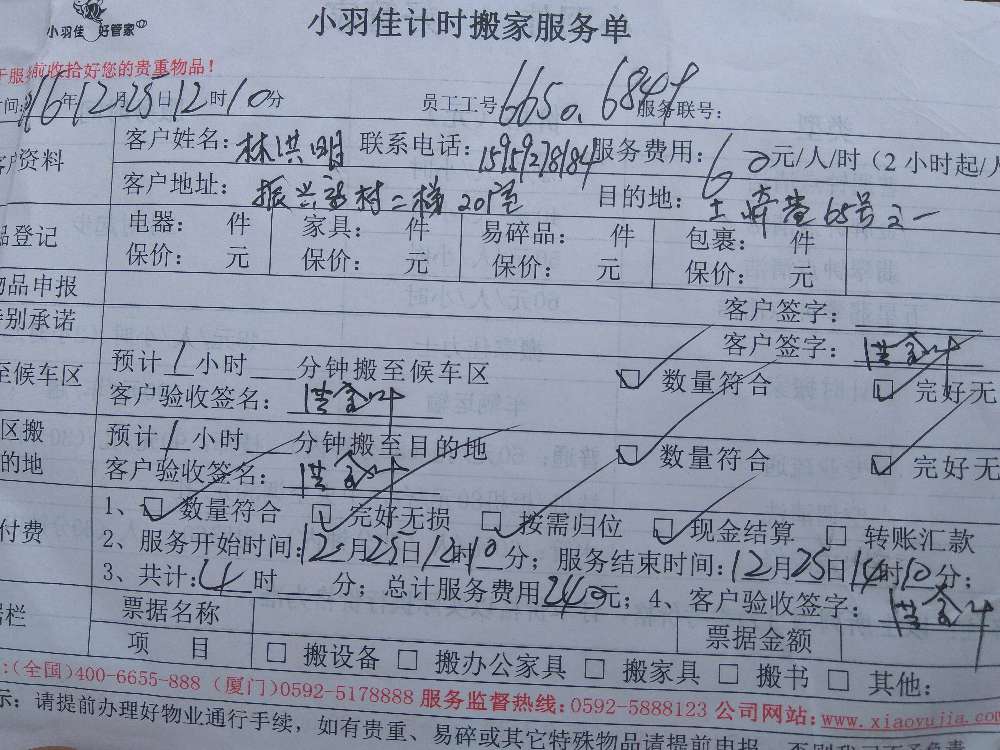 小羽佳 好管家
小羽佳计时搬家服务单
前收拾好您的贵重物品！
间: 16年12月25日12时10分 员工工号 6650.6849 服务联号:
资料 客户姓名: 林洪明 联系电话: 15959278184 服务费用: 60元/人/时（2小时起/人
客户地址: 振兴新村二梯201室 目的地: 65号之一
品登记 电器: 件 家具: 件 易碎品: 件 包裹: 件
保价: 元 保价: 元 保价: 元 保价: 元
物品申报 客户签字:
特别承诺 客户签字:
至候车区 预计1小时 分钟搬至候车区 ☑ 数量符合 ☑ 完好无
客户验收签名:
区搬 预计1小时 分钟搬至目的地 ☑ 数量符合 ☑ 完好无
的地 客户验收签名:
1、☑ 数量符合 ☑ 完好无损 ☑ 按需归位 ☑ 现金结算 □ 转账汇款
付费 2、服务开始时间:12月25日12时10分；服务结束时间:12月25日14时10分；
3、共计:4时 分；总计服务费用240元；4、客户验收签字:
据栏 票据名称 票据金额
项 目 □ 搬设备 □ 搬办公家具 □ 搬家具 □ 搬书 □ 其他:
:(全国)400-6655-888 (厦门)0592-5178888 服务监督热线:0592-5888123 公司网站:www.xiaoyujia.com
示: 请提前办理好物业通行手续，如有贵重、易碎或其它特殊物品请提前申报